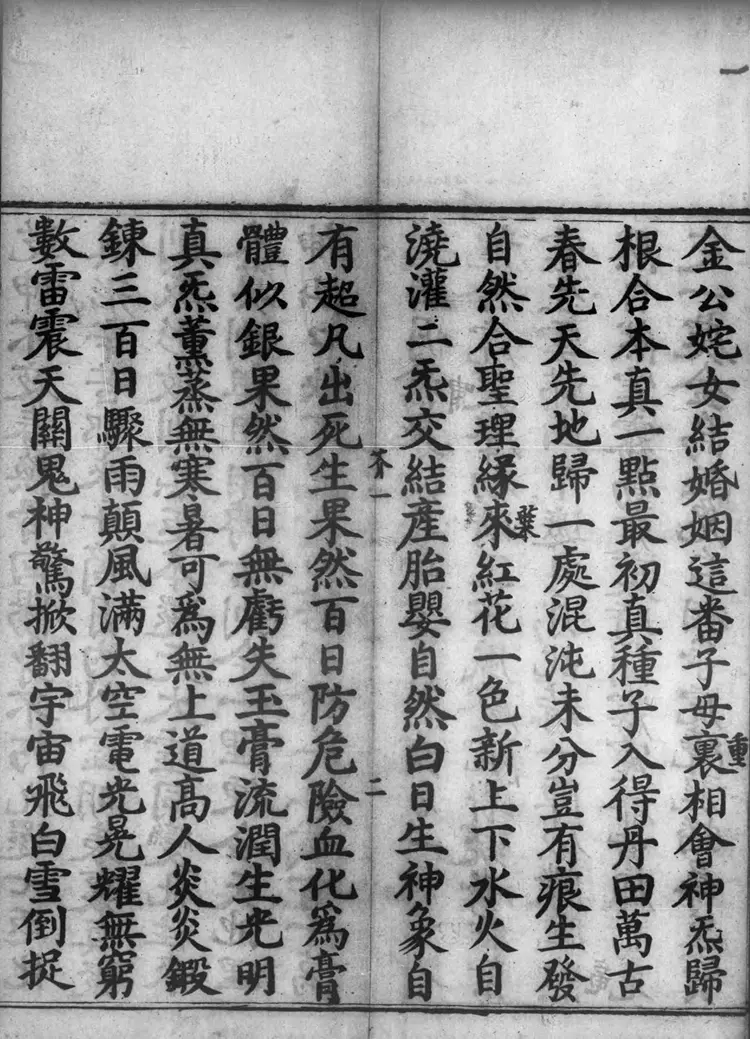 一
金公姹女結婚姻這番子母裏相會神炁歸
重
根合本真一點最初真種子入得丹田萬古
春先天先地歸一處混沌未分豈有痕生發
自然合聖理緣來紅花一色新上下水火自
葉
澆灌二炁交結產胎嬰自然白日生神象自
芥一
二
有超凡出死生果然百日防危險血化爲膏
體似銀果然百日無虧失玉膏流潤生光明
真炁薰蒸無寒暑可爲無上道高人炎炎鍛
鍊三百日驟雨顛風滿太空電光晃耀無窮
數雷震天關鬼神驚掀翻宇宙飛白雪倒捉